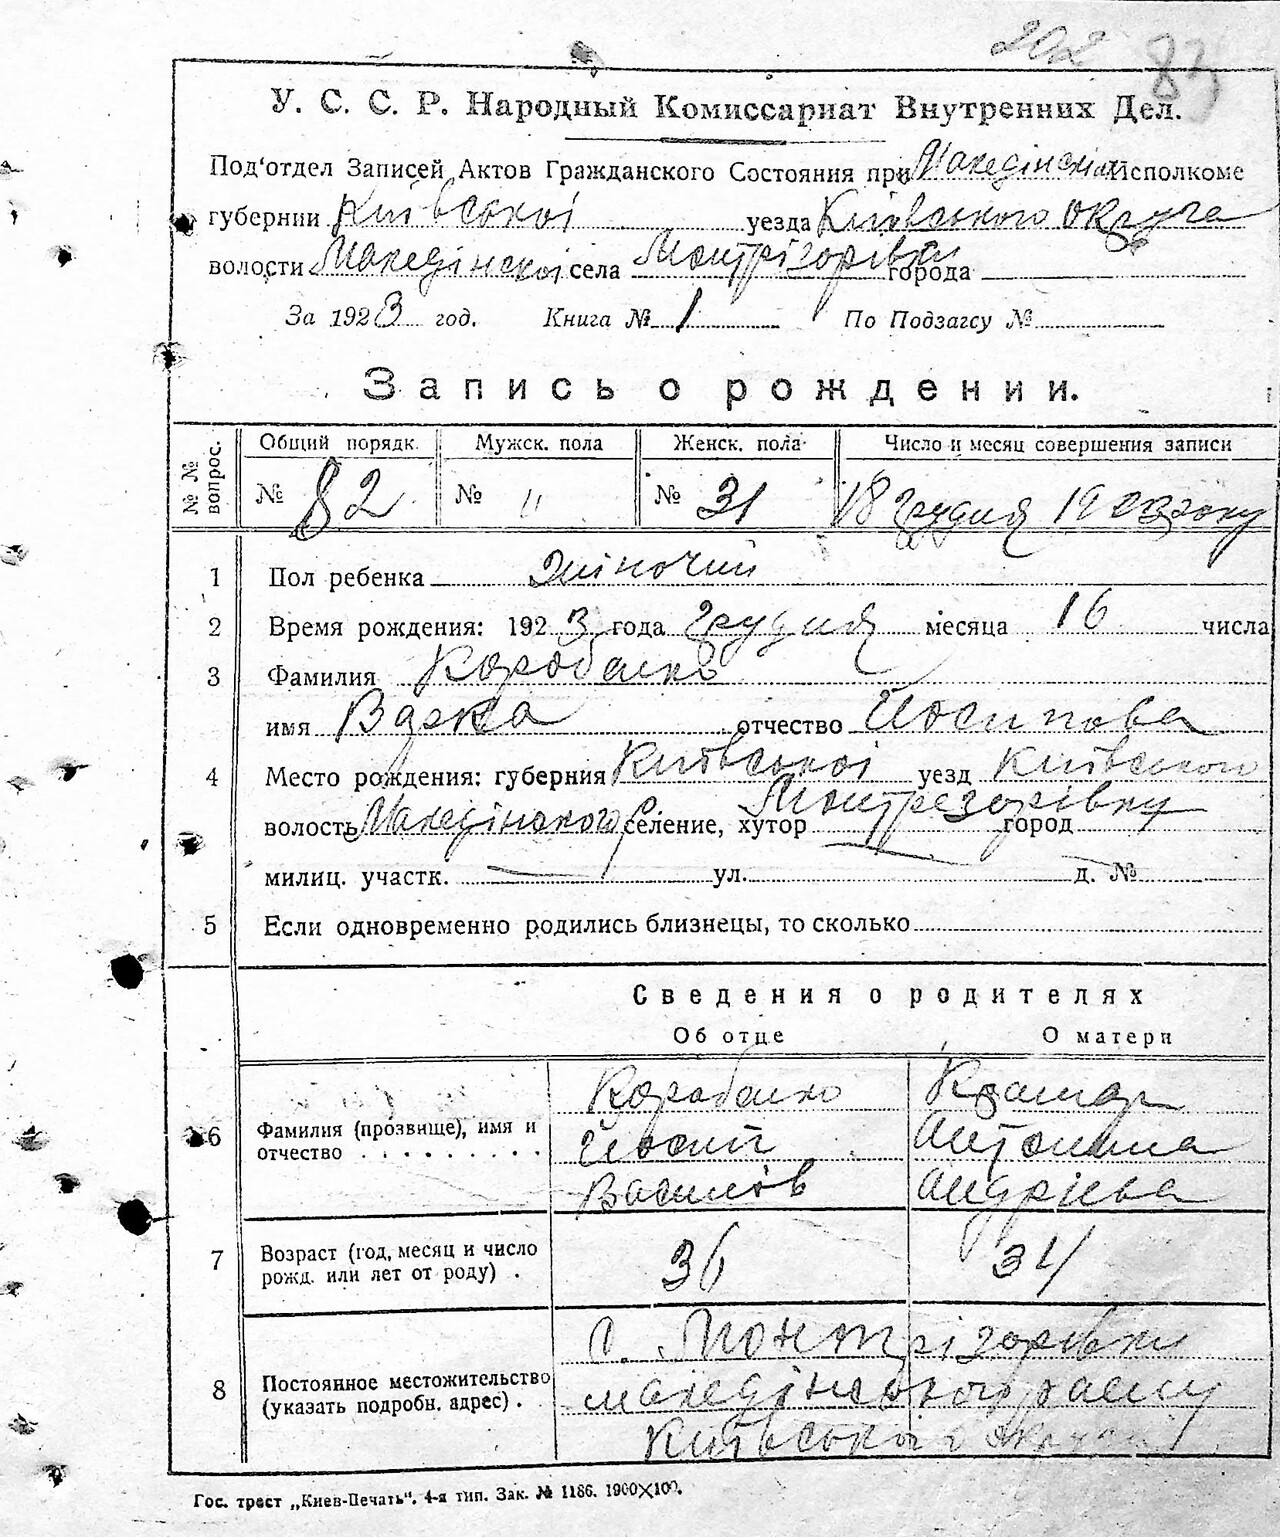 202 83
У. С. С. Р. Народный Комиссариат Внутренних Дел.
Под'отдел Записей Актов Гражданского Состояния при Македінськім Исполкоме
губернии Київської уезда Київського округа
волости Македінскої села Монтрізорівки города
За 1923 год. Книга № 1 По Подзагсу №
Запись о рождении.
№ № вопрос. Общий порядк. Мужск. пола Женск. пола Число и месяц совершения записи
№ 82 № " № 31 18 Грудня 1923 року
1 Пол ребенка жіночий
2 Время рождения: 1923 года Грудня месяца 16 числа
3 Фамилия Коробенко
имя Варка отчество Йосипова
4 Место рождения: губерния Київської уезд Київського
волость Македінского селение, хутор Монтрезорівку город
милиц. участк. ул. д. №
5 Если одновременно родились близнецы, то сколько
Сведения о родителях
Об отце О матери
6 Фамилия (прозвище), имя и отчество
Коробенко
Йосип Антонина
Василів Андрієва
7 Возраст (год, месяц и число рожд. или лет от роду) . 36 34
8 Постоянное местожительство (указать подробн. адрес) .
с. Монтрізорівки
Македінського району
Київської округи
Гос. трест „Киев-Печать". 4-я тип. Зак. № 1186. 1900×100.